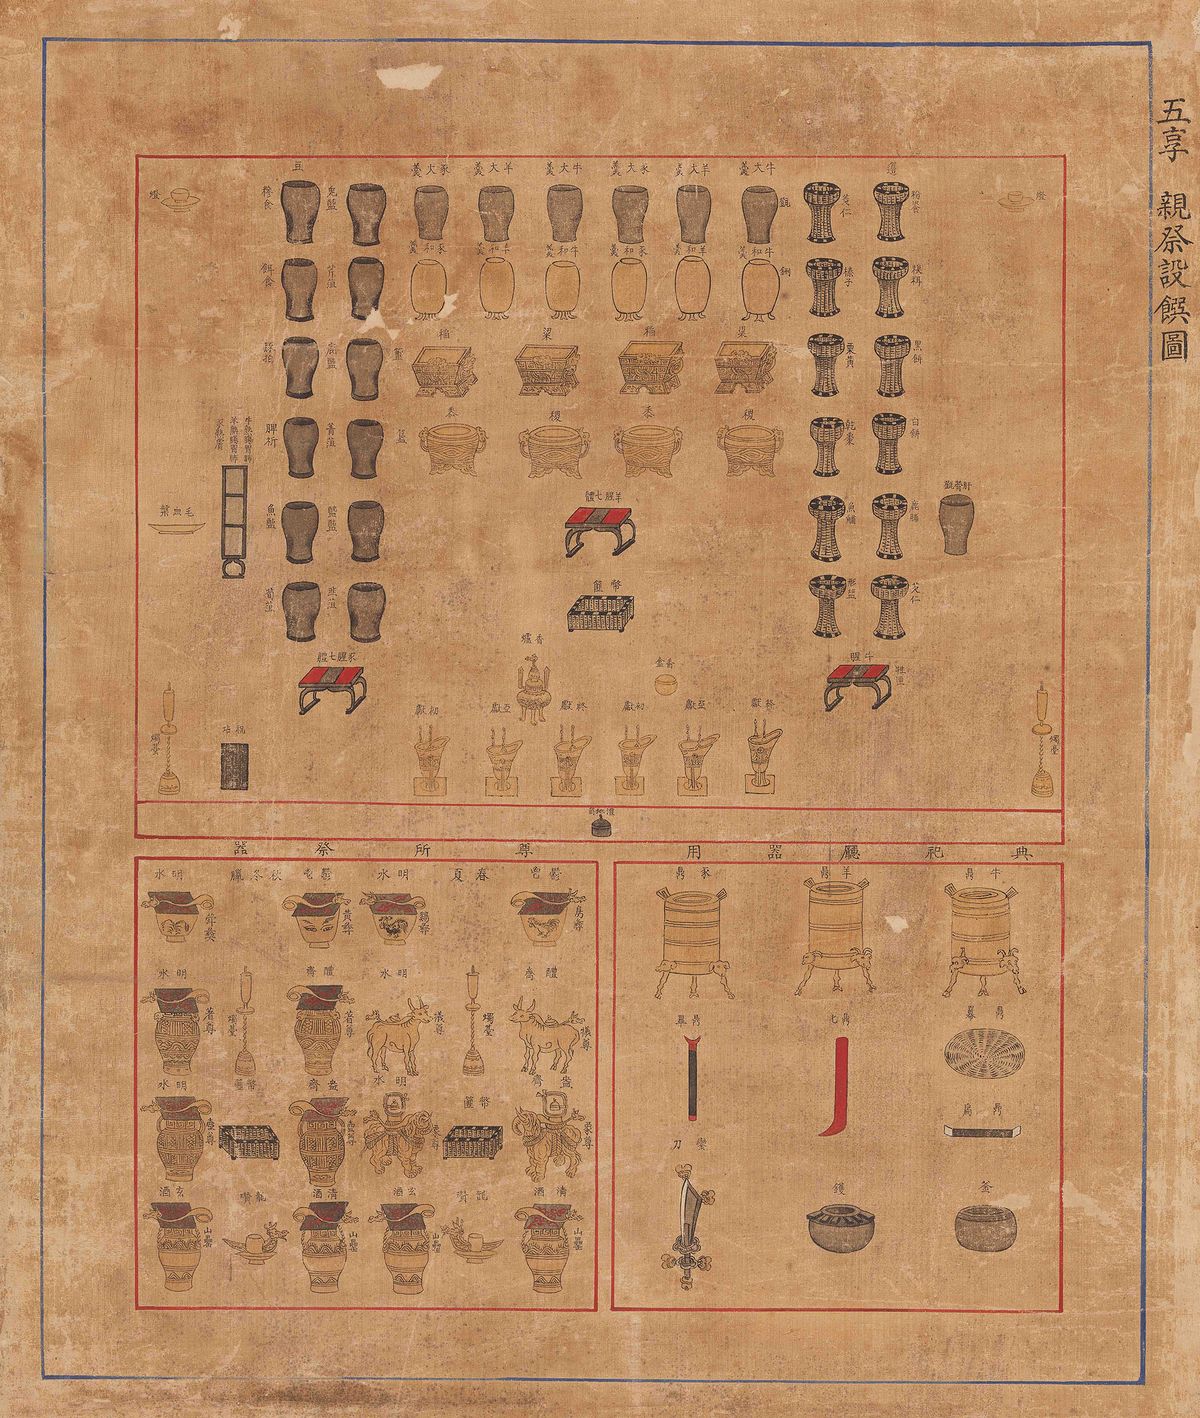 五享 親祭設饌圖
燈
籩
粉餈
糗餌
黑餅
白餅
鹿脯
芡仁
榛子
乾棗
魚鱐
形鹽
肝膋㽅
牛大羹
羊大羹
豕大羹
牛大羹
羊大羹
豕大羹
鉶
牛和羹
羊和羹
豕和羹
牛和羹
羊和羹
豕和羹
粱
稻
粱
稻
稷
黍
稷
黍
簠
簋
豆
兎醢
芹菹
鹿醢
菁菹
韭菹
糝食
豚拍
脾析
魚醢
筍菹
燈
毛血槃
羊腥七體
幣篚
牛腥
牲匣
豕腥七體
香爐
香盒
終獻
亞獻
初獻
終獻
亞獻
初獻
祝坫
燭臺
燭臺
典祀廳器用
牛鼎
羊鼎
豕鼎
鼎冪
鼎匕
鼎畢
鼎扃
鸞刀
釜
鑊
尊所祭器
春夏
明水
鷄彝
秋冬臘
黃彝
明水
斝彝
醴齊
犧尊
燭臺
明水
犧尊
醴齊
著尊
燭臺
明水
著尊
盎齊
象尊
幣篚
明水
象尊
盎齊
壺尊
幣篚
明水
壺尊
清酒
山罍
龍瓚
玄酒
山罍
清酒
山罍
龍瓚
玄酒
山罍